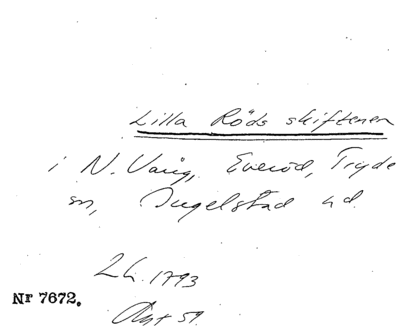 Lilla Röds skiftenen
i N. Vång, Everöd, Tryde
sn, Ingelstad hd.
2h. 1793
Nr 7672.
Akt 59.